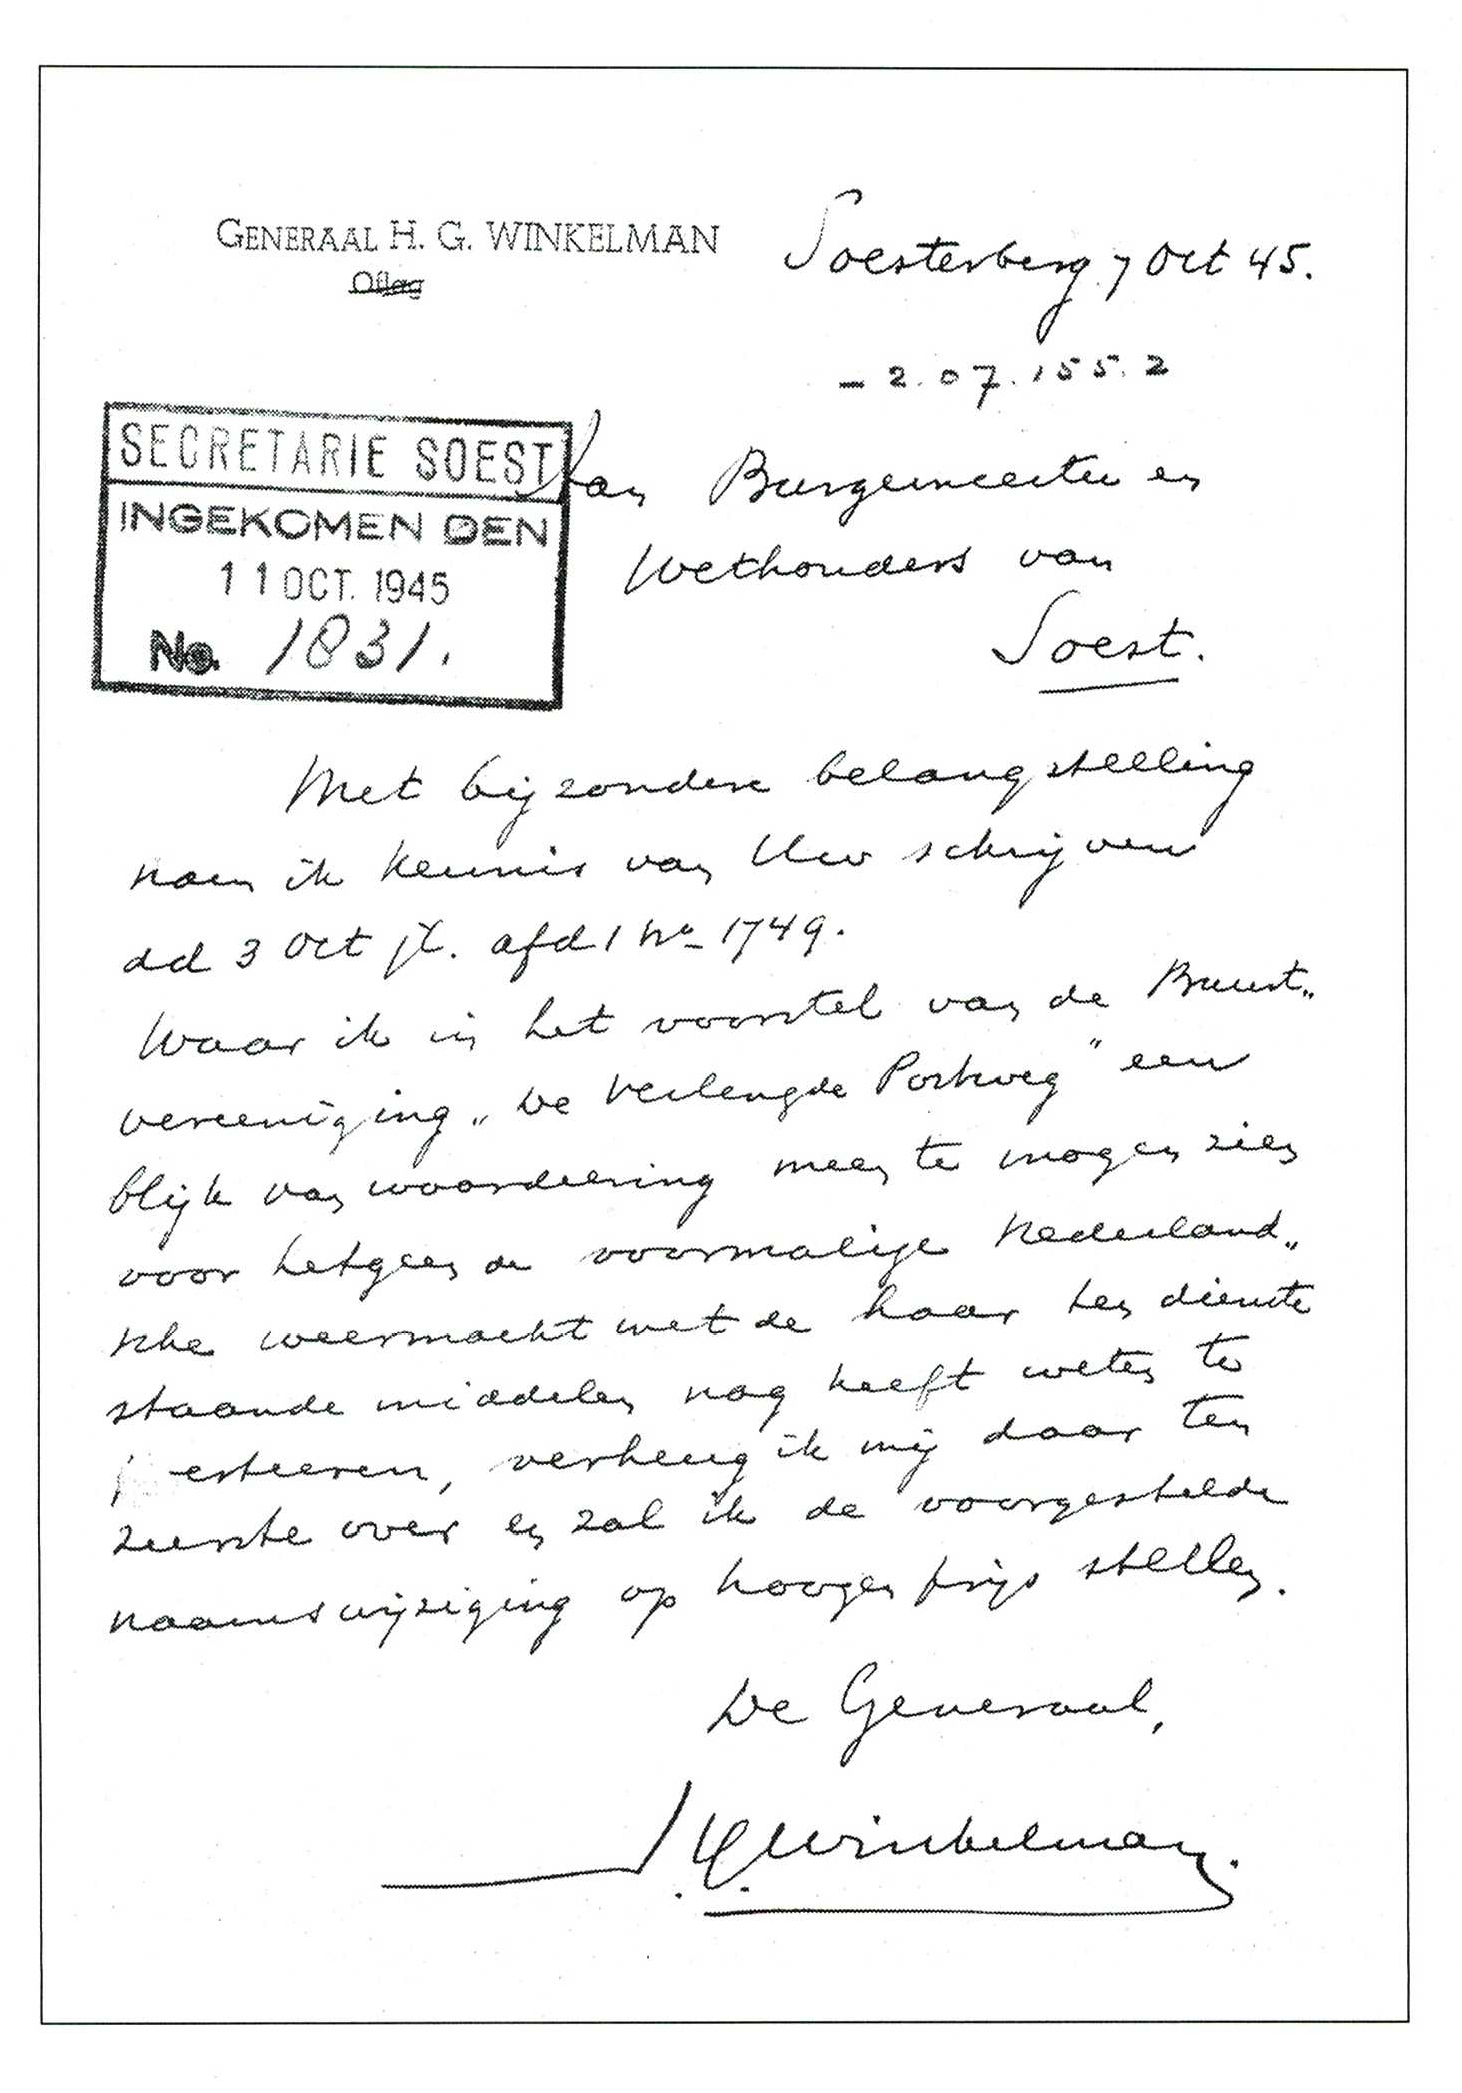 GENERAAL H. G. WINKELMAN
Oflag
Soesterberg 7 Oct 45.
- 2.07.155.2
SECRETARIE SOEST
INGEKOMEN DEN
11 OCT. 1945
No. 1831.
Aan Burgemeester en
Wethouders van
Soest.
Met bijzondere belangstelling
nam ik kennis van Uw schrijven
dd 3 Oct jl. afd 1 No 1749.
Waar ik in het voorstel van de Buurt„
vereeniging „De Verlengde Postweg" een
blijk van waardeering meen te mogen zien
voor hetgeen de voormalige Nederland„
sche weermacht met de haar ten dienste
staande middelen nog heeft weten te
presteeren, verheug ik mij daar ten
zeerste over en zal ik de voorgestelde
naamswijziging op hoogen prijs stellen.
De Generaal,
H.G. Winkelman.